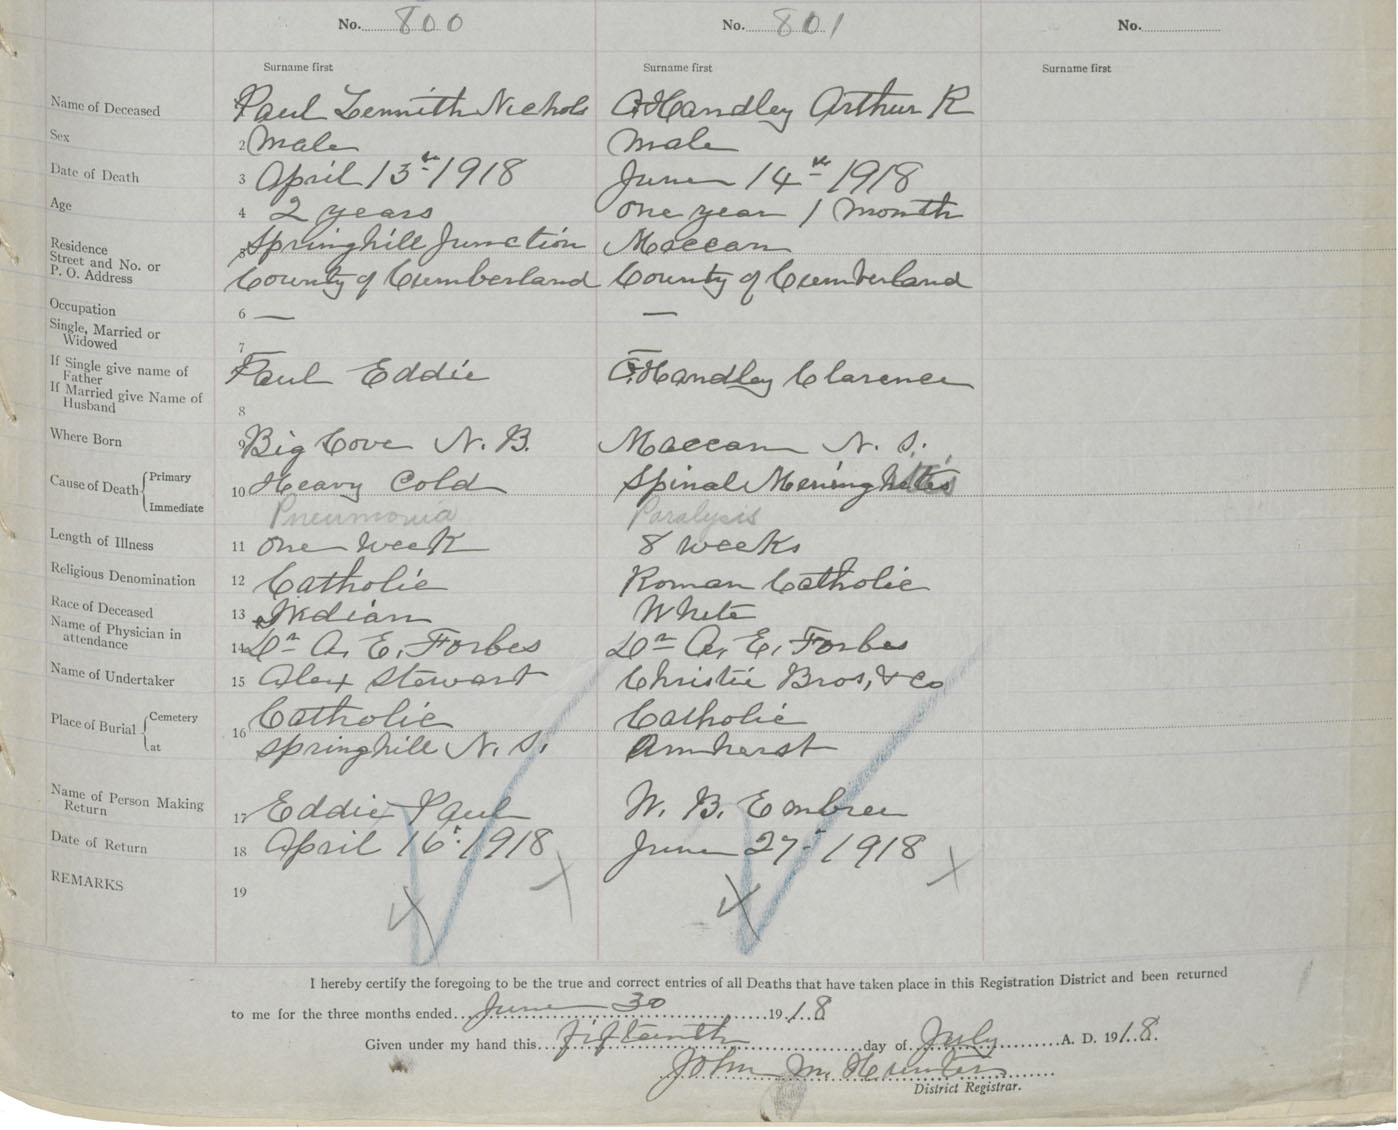 No. 800 No. 801 No.
Surname first Surname first Surname first
Name of Deceased Paul Lennith Nichols O'Handley Arthur R
Sex 2 Male Male
Date of Death 3 April 13th 1918 June 14th 1918
Age 4 2 years one year 1 month
Residence Street and No. or P. O. Address 5 Springhill Junction Maccan
County of Cumberland County of Cumberland
Occupation 6 — —
Single, Married or Widowed 7 — —
If Single give name of Father Paul Eddie O'Handley Clarence
If Married give Name of Husband 8
Where Born 9 Big Cove N. B. Maccan N. S.
Cause of Death Primary 10 Heavy Cold Spinal Meninghitis
Immediate Pneumonia Paralysis
Length of Illness 11 one week 8 weeks
Religious Denomination 12 Catholic Roman Catholic
Race of Deceased 13 Indian White
Name of Physician in attendance 14 Dr A. E. Forbes Dr A. E. Forbes
Name of Undertaker 15 Alex Stewart Christie Bros, & Co
Place of Burial Cemetery 16 Catholic Catholic
at Springhill N. S. Amherst
Name of Person Making Return 17 Eddie Paul W. B. Embree
Date of Return 18 April 16. 1918 June 27- 1918
REMARKS 19
I hereby certify the foregoing to be the true and correct entries of all Deaths that have taken place in this Registration District and been returned
to me for the three months ended June 30 1918
Given under my hand this fifteenth day of July A. D. 1918.
John M. Hunter
District Registrar.